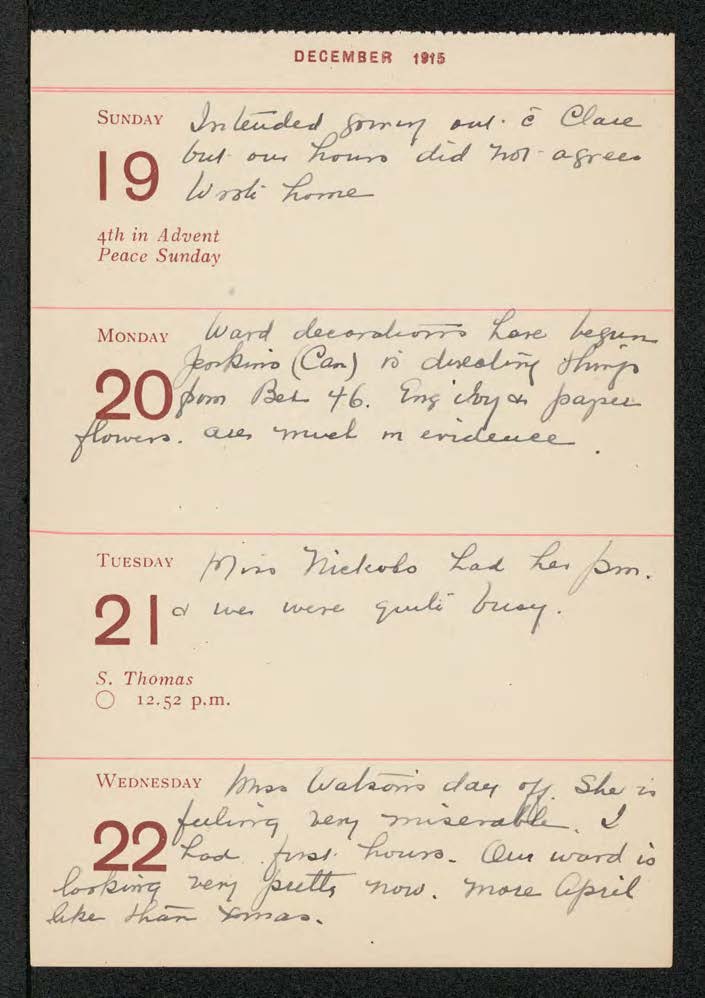 DECEMBER 1915
SUNDAY Intended going out c̄ Clare
19 but our hours did not agree
Wrote home
4th in Advent
Peace Sunday
MONDAY Ward decorations have begun
Jenkins (Can) is directing things
20 from Bed 46. Eng ivy & paper
flowers. are much in evidence.
TUESDAY Miss Nickols had her pm.
21 & we were quite busy.
S. Thomas
12.52 p.m.
WEDNESDAY Miss Watson's day off. She is
feeling very miserable. I
22 had first hours. Our ward is
looking very pretty now. more April
like than Xmas.